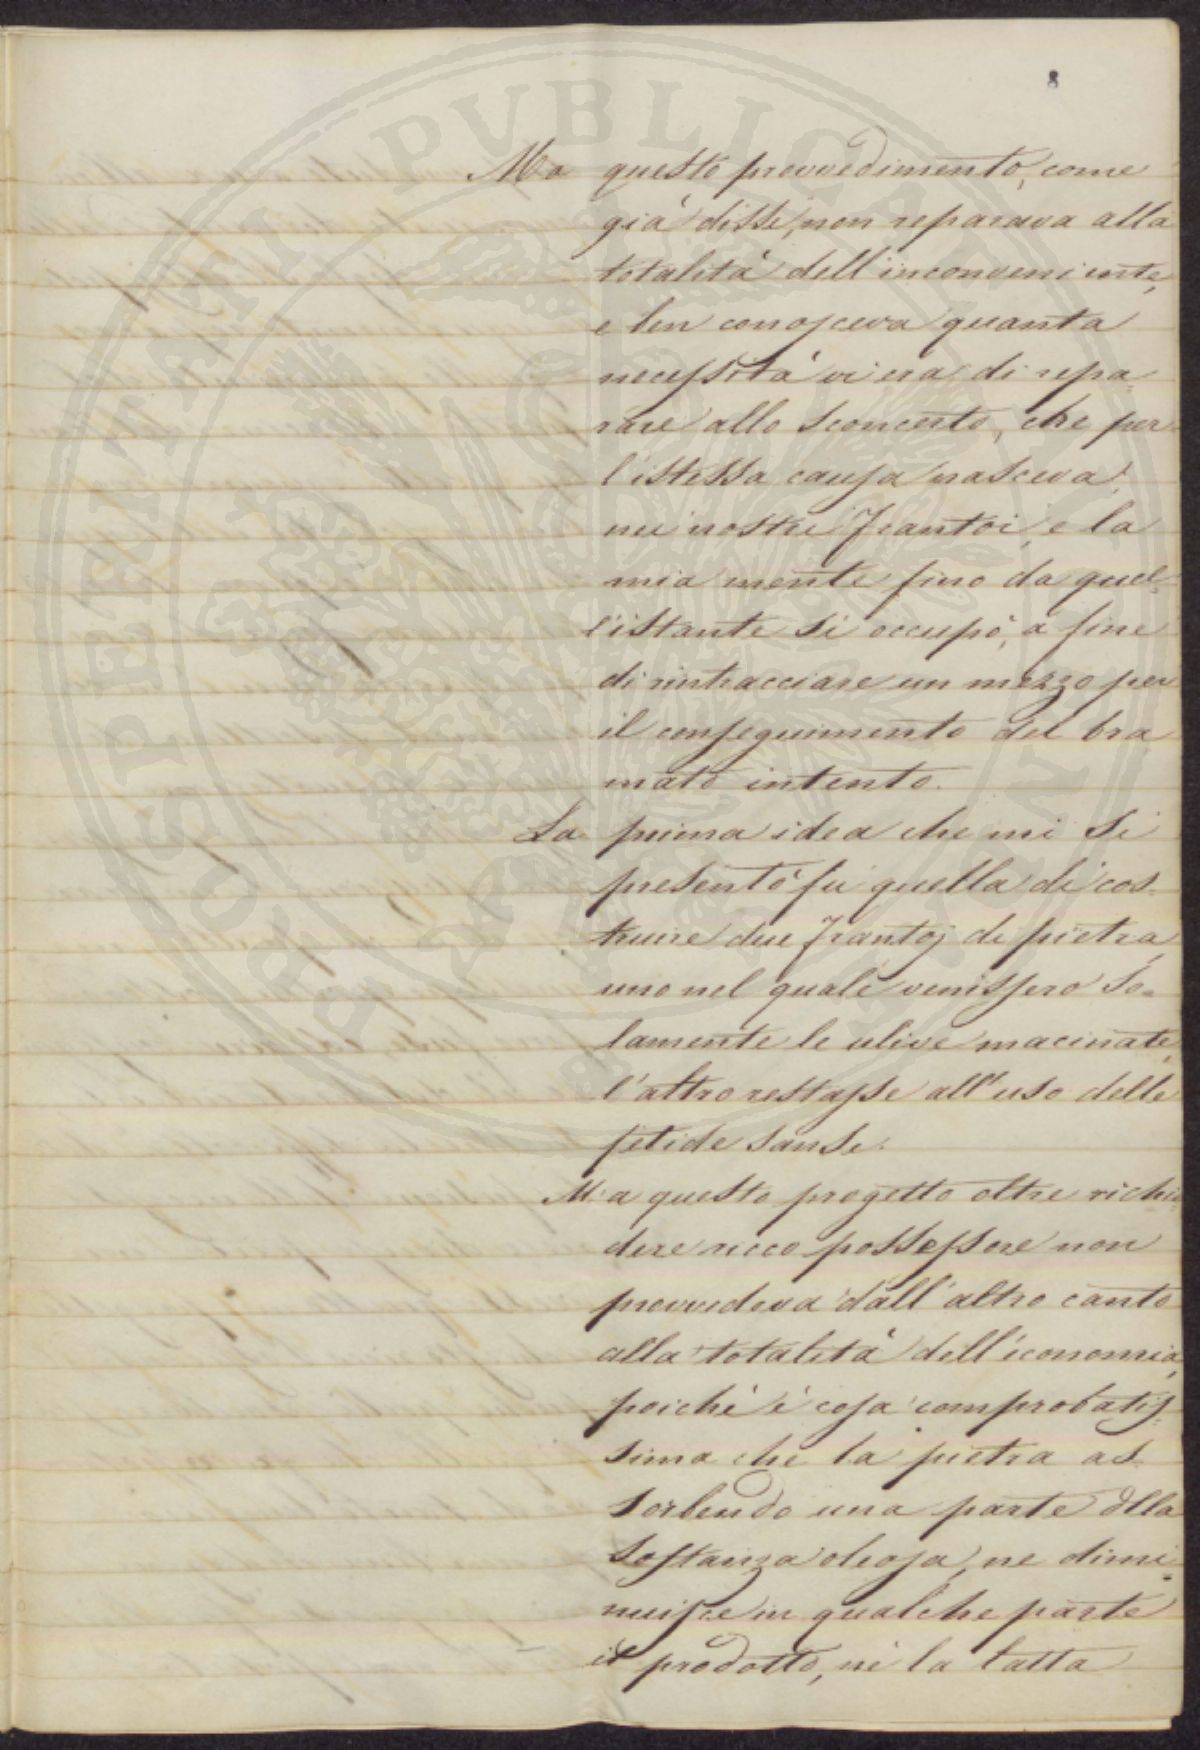 8
Ma questo provvedimento, come
già dissi, non reparava alla
totalità dell'inconveniente,
e ben conosceva quanta
necessità vi era di repa-
rare allo sconcerto, che per
l'istessa causa nasceva
nei nostri Frantoi, e la
mia mente fino da quel-
l'istante si occupò, a fine
di rintracciare un mezzo per
il conseguimento del bra
mato intento.
La prima idea che mi si
presentò fu quella di cos-
truire due Frantoj di pietra
uno nel quale venissero so-
lamente le ulive macinate,
l'altro restasse all'uso delle
fetide sanse.
Ma questo progetto oltre richie
dere ricco possessore non
provvedeva dall'altro canto
alla totalità dell'economia,
poichè è cosa comprobatis-
sima che la pietra as
sorbendo una parte dlla
sostanza oleosa, ne dimi-
nuisce in qualche parte
il prodotto, nè la
PROSPERITATI PUBLICAE